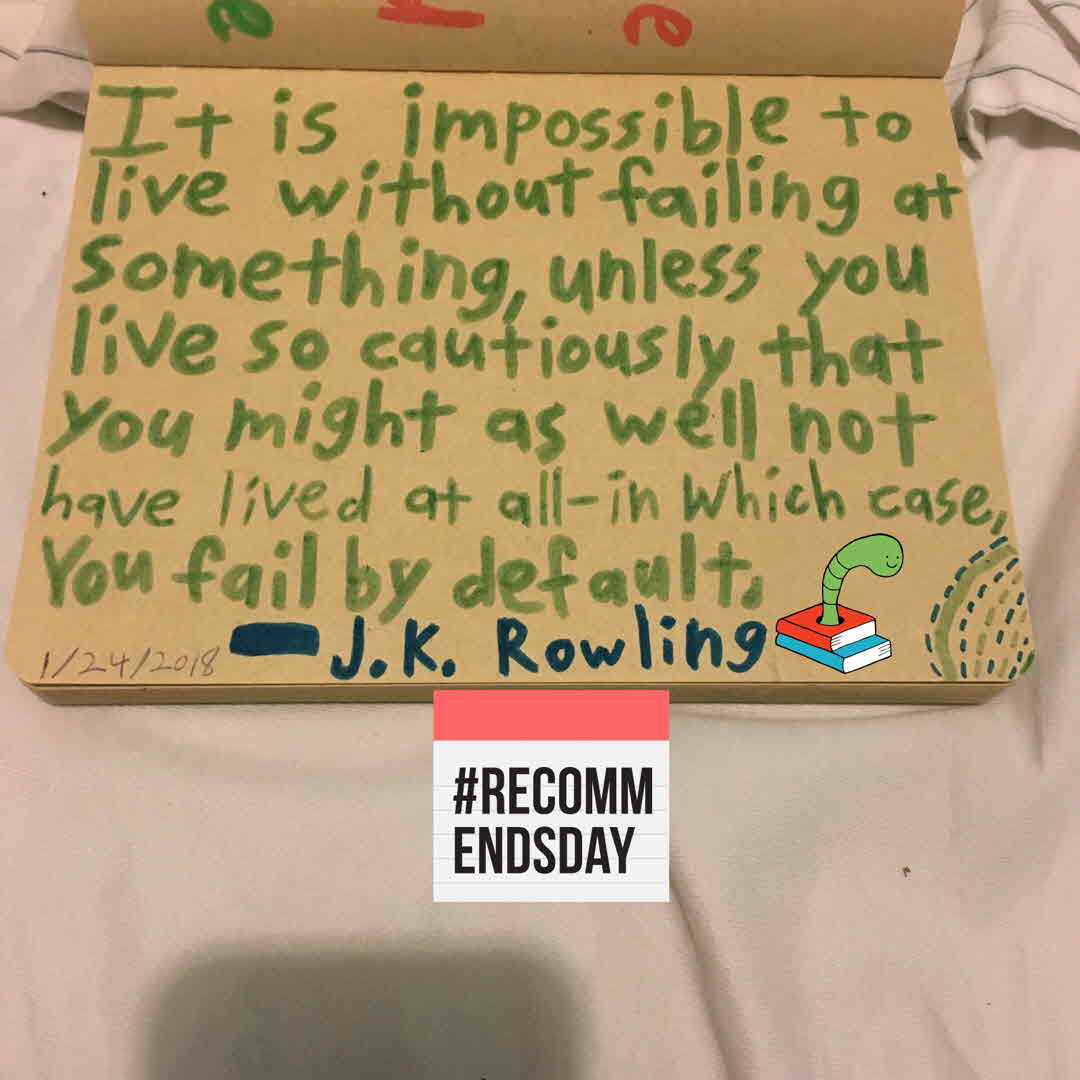 It is impossible to
live without failing at
something, unless you
live so cautiously that
you might as well not
have lived at all-in which case,
You fail by default.
- J.K. Rowling
1/24/2018
#RECOMM
ENDSDAY